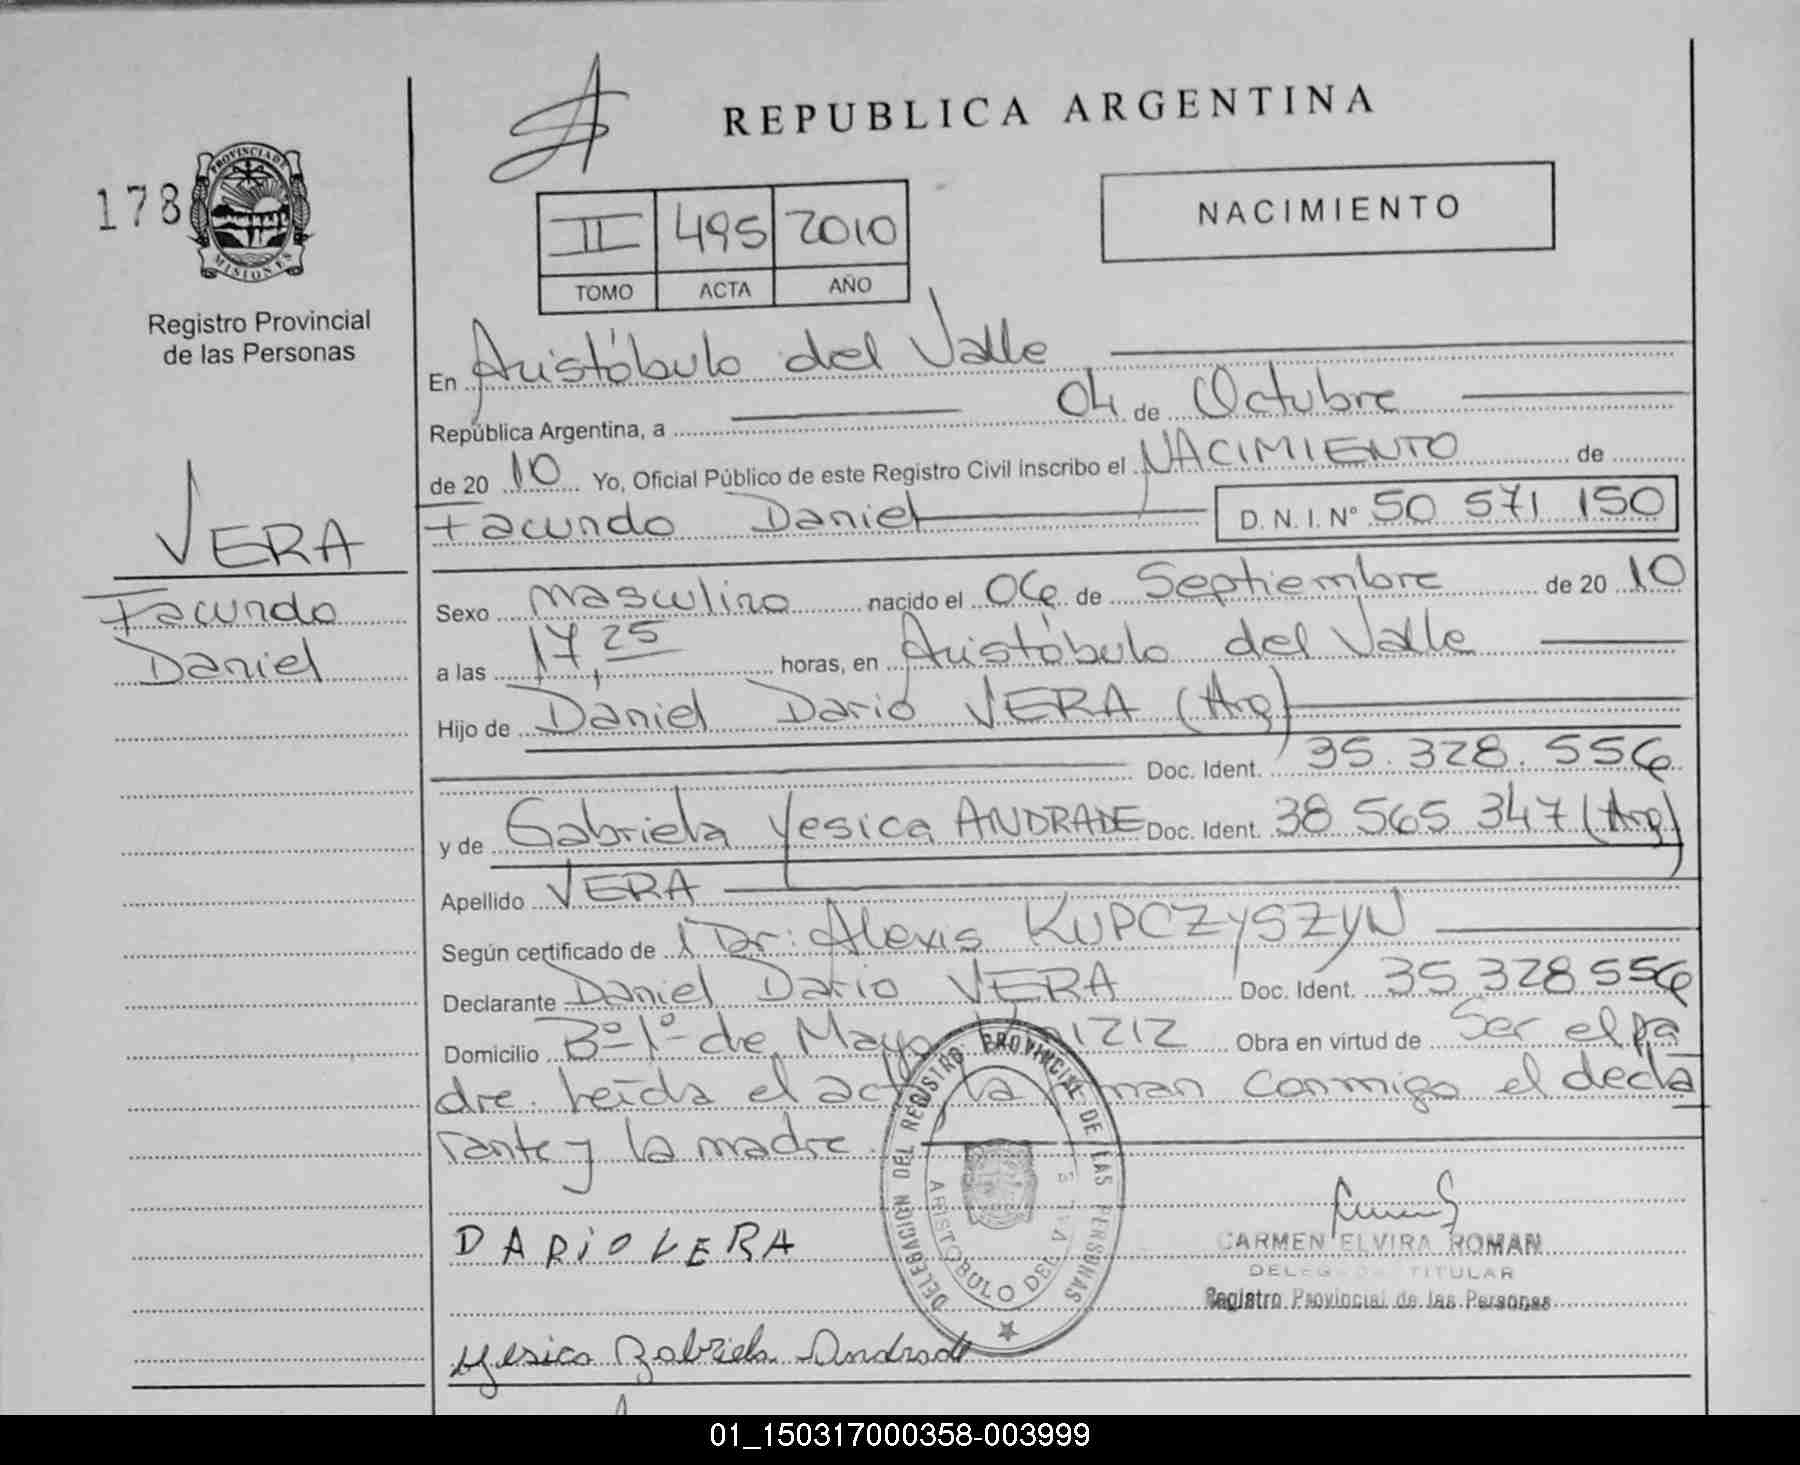 REPUBLICA ARGENTINA
178
PROVINCIA DE
MISIONES
Registro Provincial
de las Personas
NACIMIENTO
II 495 2010
TOMO ACTA AÑO
En Aristóbulo del Valle
República Argentina, a 04 de Octubre
de 20 10 Yo, Oficial Público de este Registro Civil inscribo el NACIMIENTO de
Facundo Daniel D. N. I. Nº 50 571 150
VERA
Facundo
Daniel
Sexo masculino nacido el 06 de Septiembre de 20 10
a las 17,25 horas, en Aristóbulo del Valle
Hijo de Daniel Dario VERA (Arg)
Doc. Ident. 35.328.556
y de Gabriela Yesica ANDRADE Doc. Ident. 38 565 347 (Arg)
Apellido VERA
Según certificado de Dr: Alexis KUPCZYSZYN
Declarante Daniel Dario VERA Doc. Ident. 35 328 556
Domicilio Bº 1º de Mayo 1212 Obra en virtud de Ser el pa
dre. Leída el acta la firman conmigo el decla
rante y la madre.
DELEGACION DEL REGISTRO PROVINCIAL DE LAS PERSONAS
ARISTOBULO DEL VALLE
DARIO VERA
CARMEN ELVIRA ROMAN
DELEGADA TITULAR
Registro Provincial de las Personas
Yesica Gabriela Andrade
01_150317000358-003999